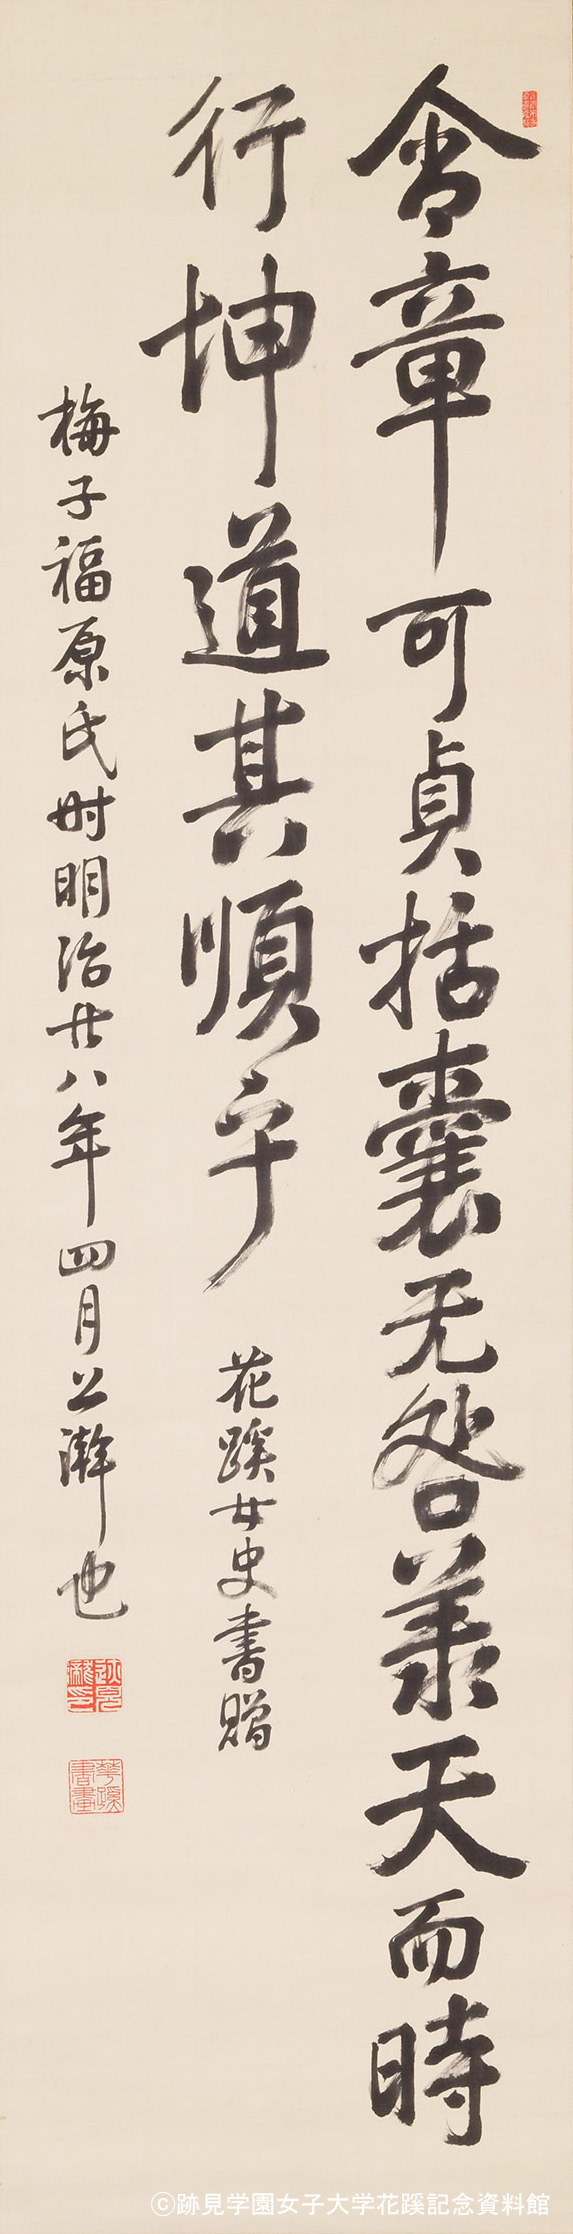 含章可貞括嚢无咎承天而時
行坤道其順乎
花蹊女史書贈
梅子福原氏时明治廿八年四月上澣也
跡見瀧印
華蹊書畫
©跡見学園女子大学花蹊記念資料館